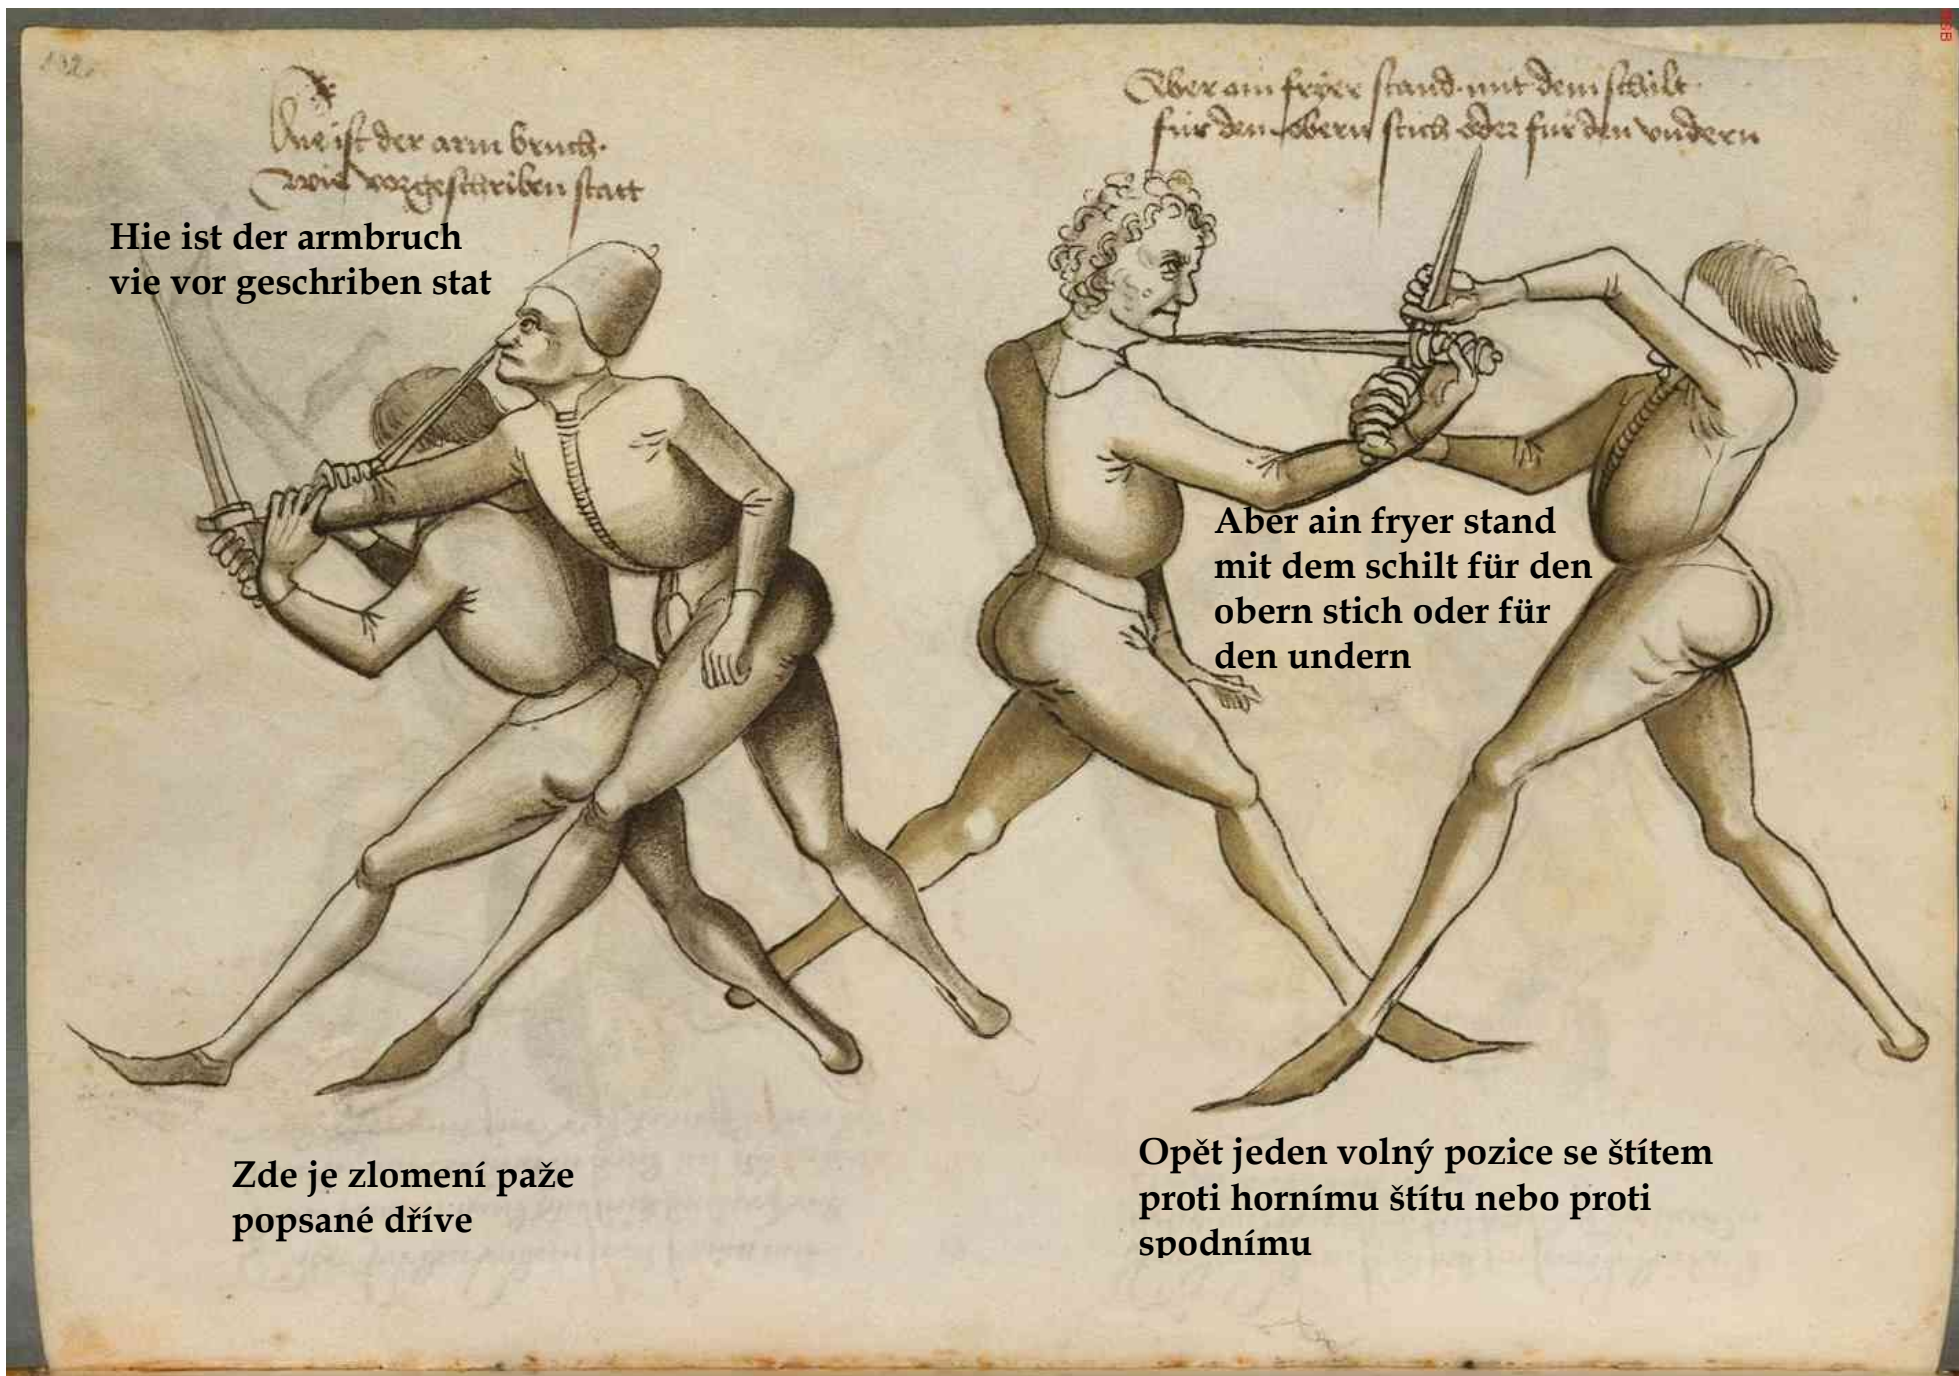 132
Hie ist der arm bruch.
Wie vorgeschriben statt
Hie ist der armbruch
vie vor geschriben stat
Zde je zlomení paže
popsané dříve
Aber ain fryer stand mit dem schilt
für den obern stich oder für den vndern
Aber ain fryer stand
mit dem schilt für den
obern stich oder für
den undern
Opět jeden volný pozice se štítem
proti hornímu štítu nebo proti
spodnímu